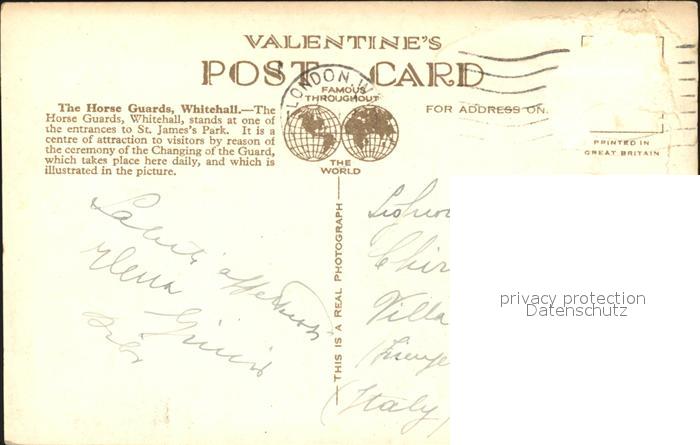 VALENTINE'S
POST CARD
LONDON W
FAMOUS
THROUGHOUT
THE
WORLD
FOR ADDRESS ON
PRINTED IN
GREAT BRITAIN
The Horse Guards, Whitehall.—The
Horse Guards, Whitehall, stands at one of
the entrances to St. James's Park. It is a
centre of attraction to visitors by reason of
the ceremony of the Changing of the Guard,
which takes place here daily, and which is
illustrated in the picture.
THIS IS A REAL PHOTOGRAPH
Saluti affettuosi
Elena
Villa
(Italy)
privacy protection
Datenschutz